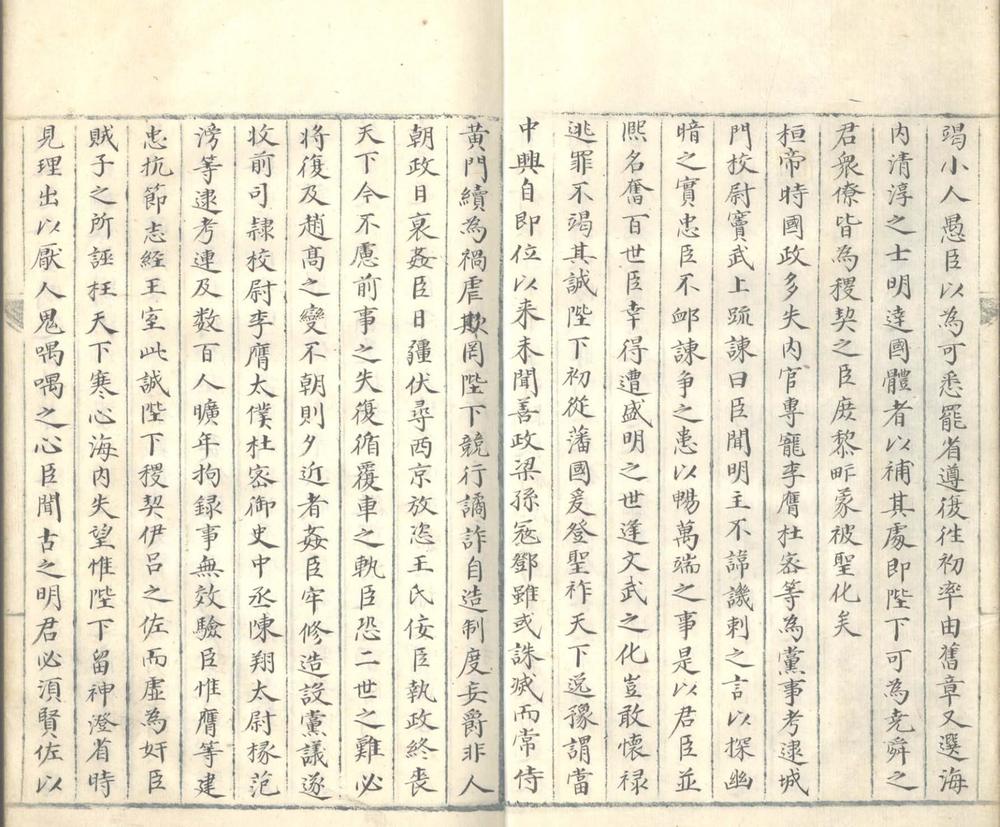 竭小人愚臣以為可悉罷省遵復徃初率由舊章又選海
内清淳之士明達國體者以補其處即陛下可為堯舜之
君衆僚皆為稷契之臣庶黎畍蒙被聖化矣
桓帝時國政多失内官專寵李膺杜宻等為黨事考逮城
門挍尉竇武上䟽諫曰臣聞明主不諱譏刺之言以探幽
暗之實忠臣不䘏諫争之患以暢萬端之事是以君臣並
熈名奮百世臣幸得遭盛明之世逢文武之化豈敢懷禄
逃罪不竭其誠陛下初從藩國爰登聖祚天下逸豫謂當
中興自即位以来未聞善政梁孫冦鄧雖或誅滅而常侍
黄門續為禍虐欺罔陛下競行譎詐自造制度妄爵非人
朝政日衰姦臣日彊伏尋西京放恣王氏佞臣執政終喪
天下今不慮前事之失復循覆車之軌臣恐二世之難必
将復及趙髙之變不朝則夕近者姦臣牢修造設黨議遂
收前司隷校尉李膺太僕杜宻御史中丞陳翔太尉掾范
滂等逮考連及数百人曠年拘録事無效驗臣惟膺等建
忠抗節志経王室此誠陛下稷契伊吕之佐而虚為奸臣
賊子之所誣枉天下寒心海内失望惟陛下留神澄省時
見理出以厭人鬼喁喁之心臣聞古之明君必湏賢佐以